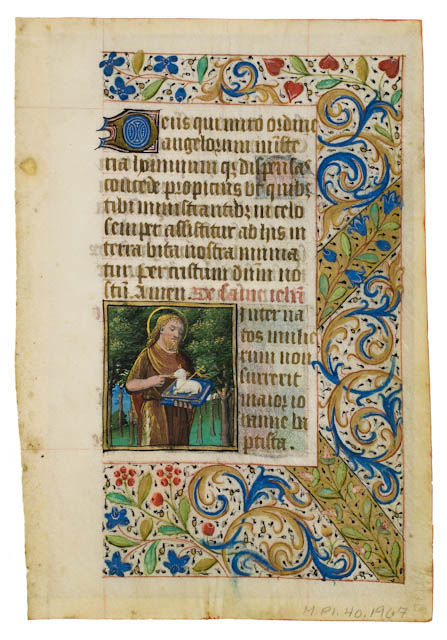 Deus qui miro ordine
angelorum miste
ria hominum qz dispensas
concede propicius ut quibus
tibi ministrantibus in celo
semper assistitur ab his in
terra vita nostra munia
tur per cristum dnm no
strū. Amen. De saint iehan
Inter na
tos mulie
rum non
surrexit
maior io
hanne ba
ptista.
M. Pl. 40. 1907